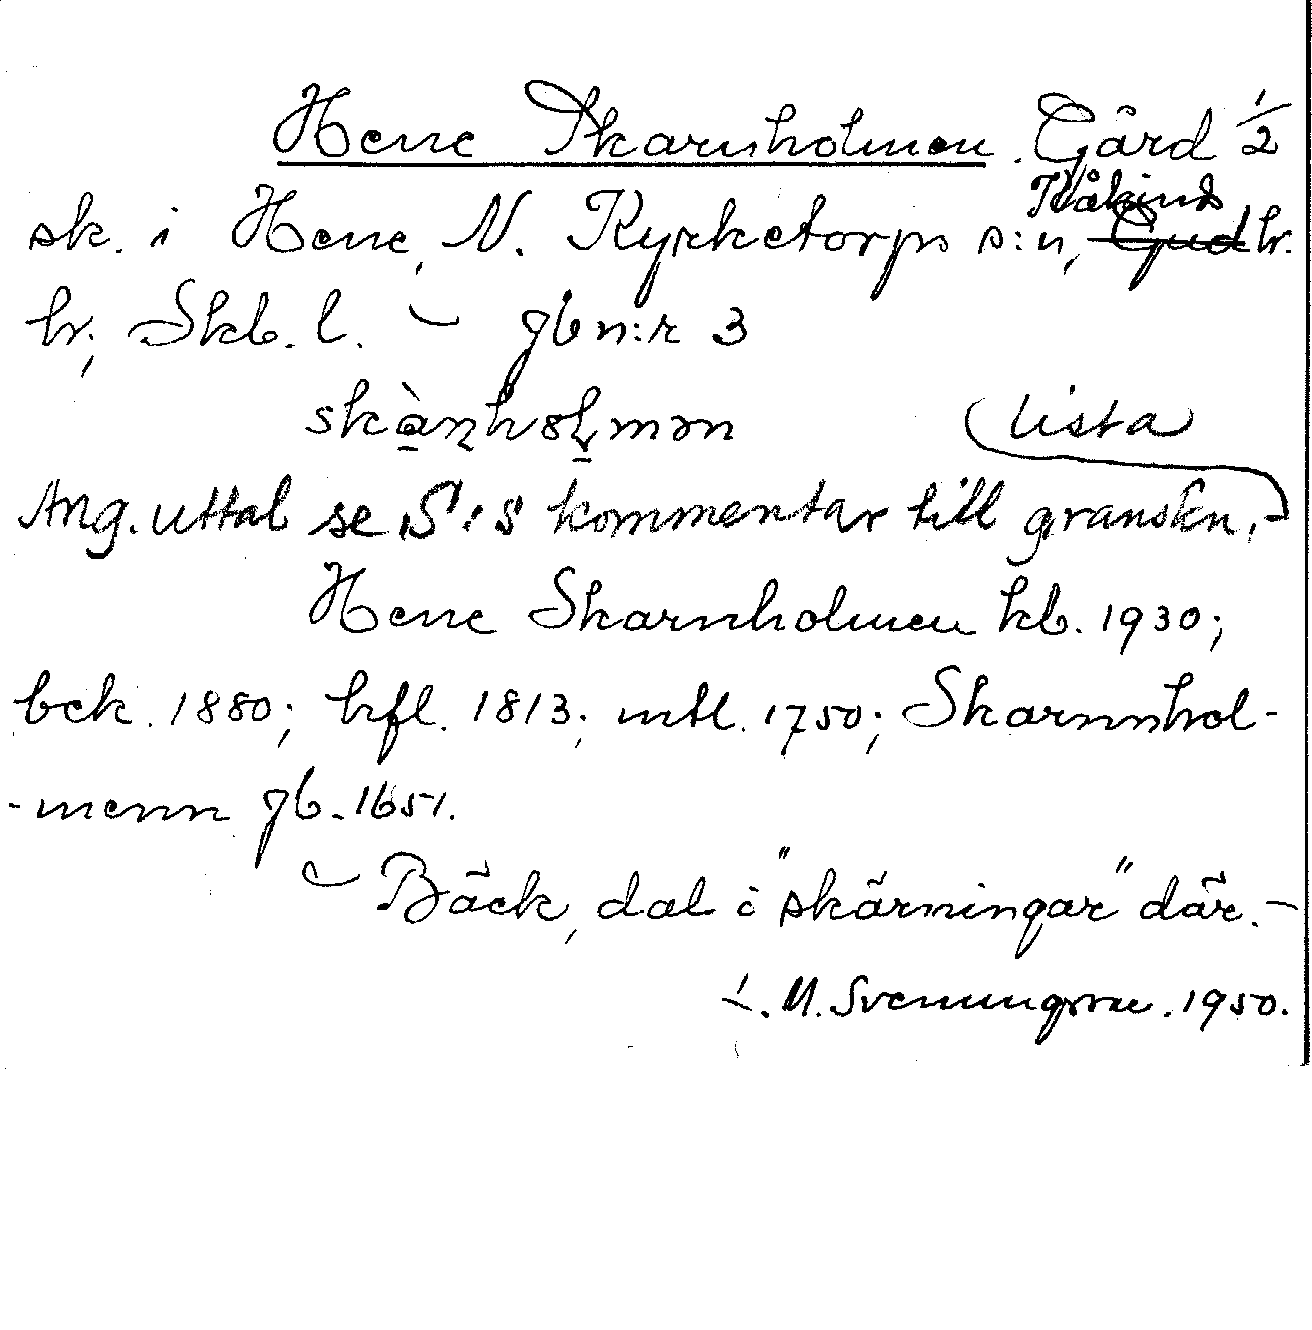 Hene Skarnholmen. Gård 1/2
Kåkinds
sk. i Hene, N. Kyrketorps s:n, Gudhr.
hr; Skb. l. – gb n:r 3
skàṇhoḷmən (lista
Ang. uttal se S:s kommentar till granskn.-
Hene Skarnholmen kb. 1930;
bek. 1880; hfl. 1813; mtl. 1750; Skarnnhol-
-menn gb. 1651.
– Bäck, dal i "skärningar" där. –
L. M. Svenungsson. 1950.